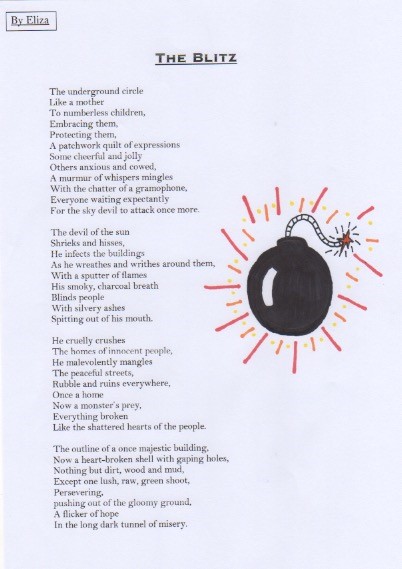 By Eliza
THE BLITZ
The underground circle
Like a mother
To numberless children,
Embracing them,
Protecting them,
A patchwork quilt of expressions
Some cheerful and jolly
Others anxious and cowed,
A murmur of whispers mingles
With the chatter of a gramophone,
Everyone waiting expectantly
For the sky devil to attack once more.
The devil of the sun
Shrieks and hisses,
He infects the buildings
As he wreathes and writhes around them,
With a sputter of flames
His smoky, charcoal breath
Blinds people
With silvery ashes
Spitting out of his mouth.
He cruelly crushes
The homes of innocent people,
He malevolently mangles
The peaceful streets,
Rubble and ruins everywhere,
Once a home
Now a monster's prey,
Everything broken
Like the shattered hearts of the people.
The outline of a once majestic building,
Now a heart-broken shell with gaping holes,
Nothing but dirt, wood and mud,
Except one lush, raw, green shoot,
Persevering,
pushing out of the gloomy ground,
A flicker of hope
In the long dark tunnel of misery.